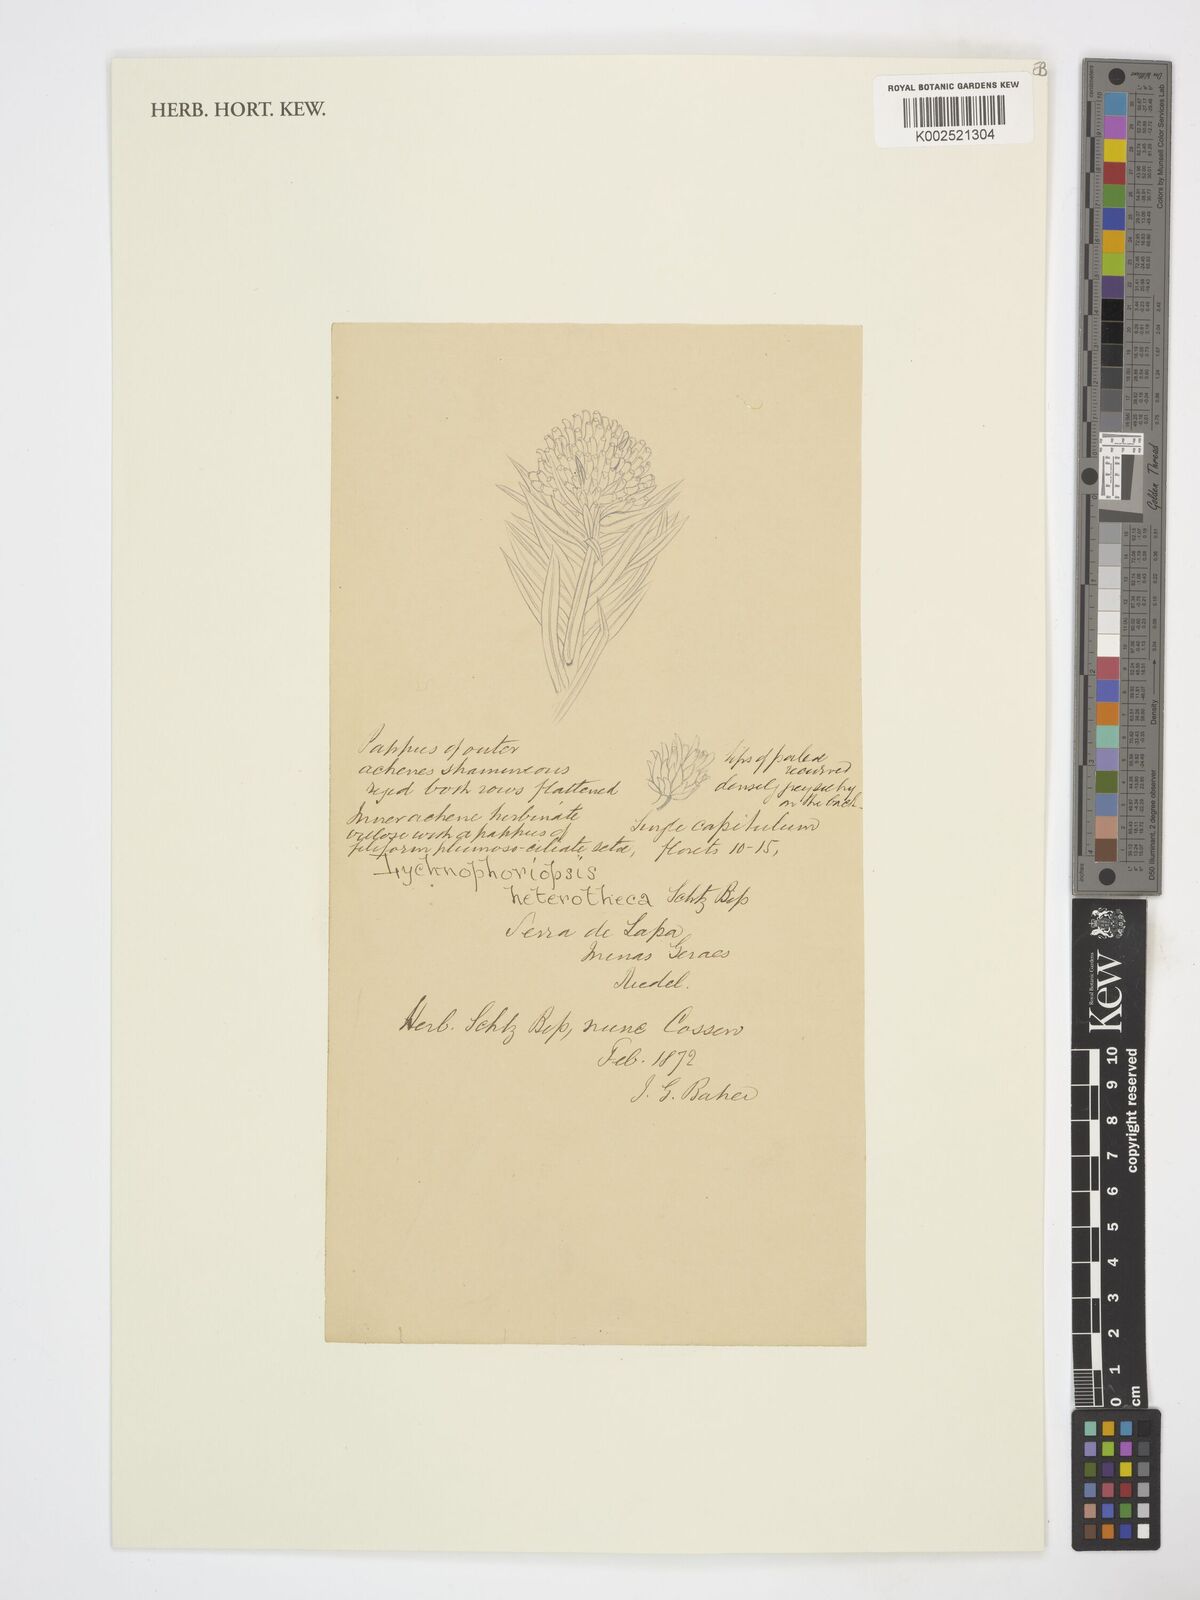 HERB. HORT. KEW.
ROYAL BOTANIC GARDENS KEW
K002521304
Pappus of outer
achenes stramineous
rigid both rows flattened
Inner achene turbinate
villose with a pappus of
filiform plumoso-ciliate setae,
tips of
recurved
densely grey silky
on the back
Single capitulum
florets 10-15,
Lychnophoriopsis
heterotheca Schtz Bip
Serra de Lapa
Minas Geraes
Riedel.
Herb. Schtz Bip, nunc Cosson
Feb. 1872
J. G. Baker
Kew
Royal Botanic Gardens
copyright reserved
0 1 2 3 4 5 6 7 8 9 10
cm
Golden Thread
Colors by Munsell Color Services Lab
Density
D50 Illuminant, 2 degree observer
centimeters